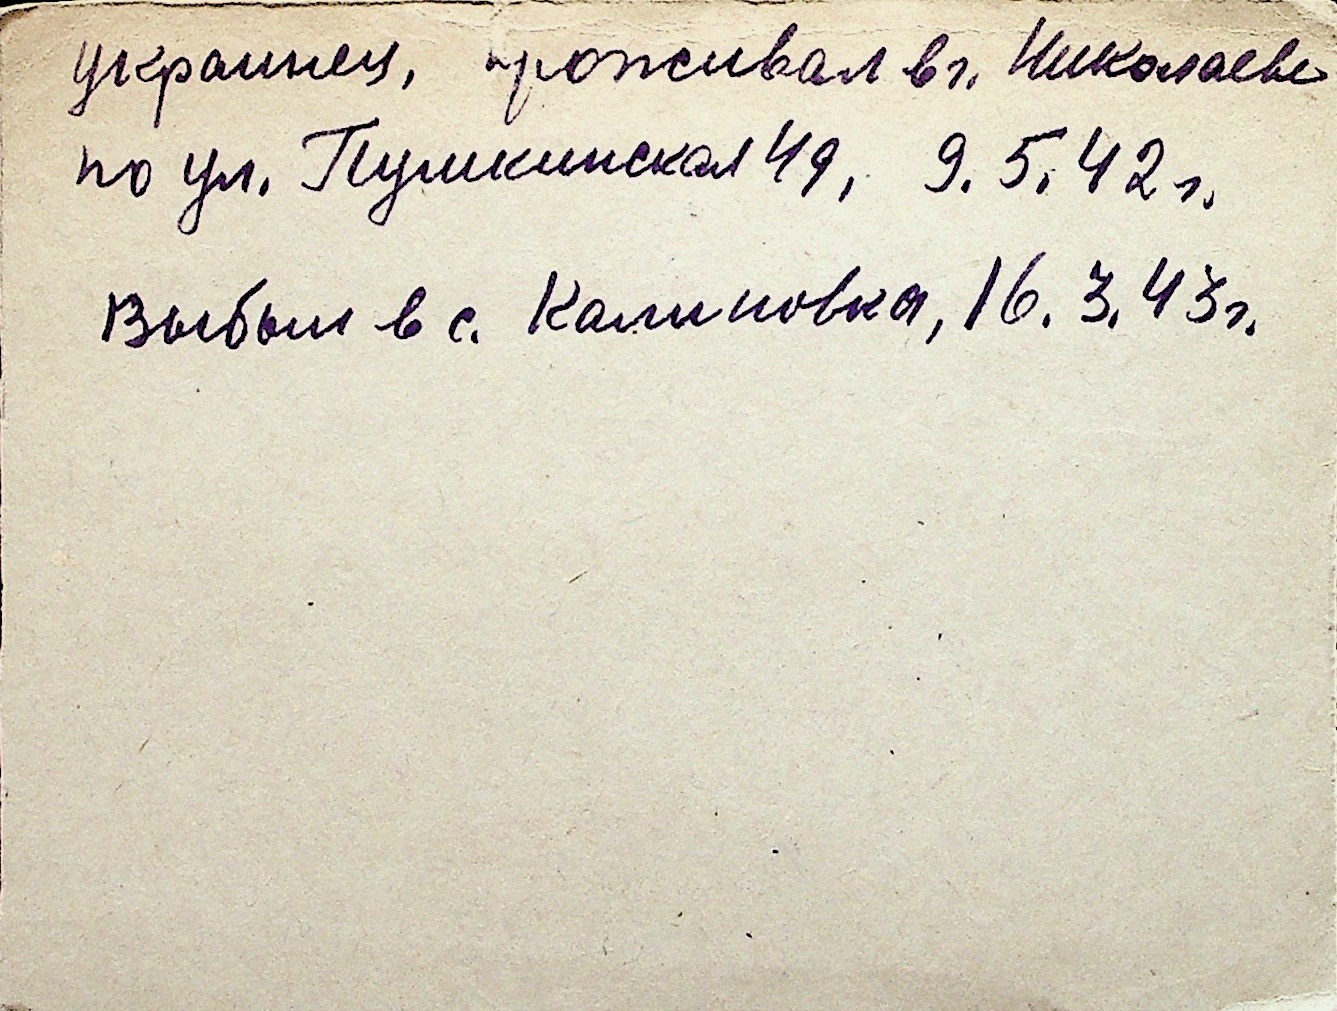 украинец, проживал в г. Николаеве
по ул. Пушкинская 49, 9.5.42 г.
Выбыл в с. Калиновка, 16.3.43 г.